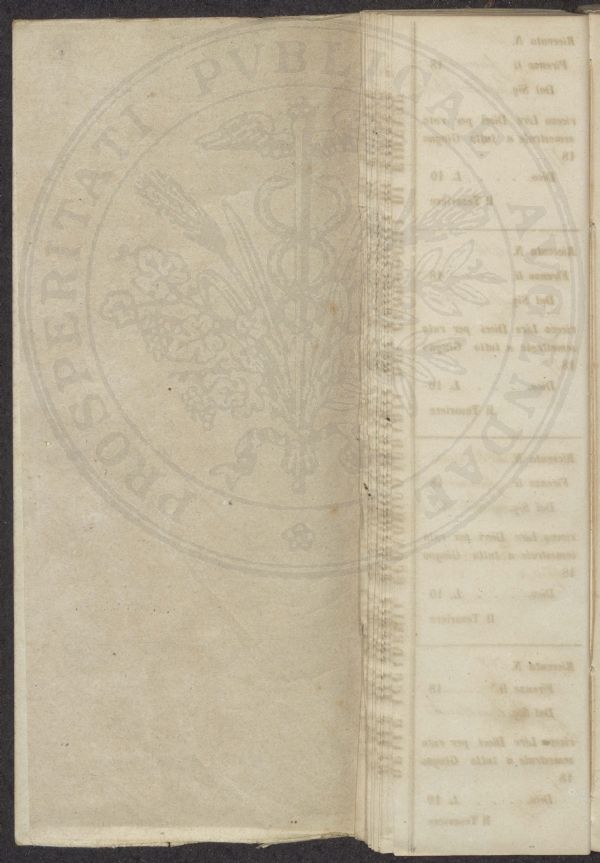 PROSPERITATI PVBLICAE AVGENDAE
REALE ACCADEMIA ECONOMICO-AGRARIA DEI GEORGOFILI DI FIRENZE
Ricevuta N.
Firenze li 18
Del Sig.
ricevo Lire Dieci per rata
semestrale a tutto Giugno
18
Dico. . . . . L. 10
Il Tesoriere
Ricevuta N.
Firenze li 18
Del Sig.
ricevo Lire Dieci per rata
semestrale a tutto Giugno
18
Dico. . . . . L. 10
Il Tesoriere
Ricevuta N.
Firenze li 18
Del Sig.
ricevo Lire Dieci per rata
semestrale a tutto Giugno
18
Dico. . . . . L. 10
Il Tesoriere
Ricevuta N.
Firenze li 18
Del Sig.
ricevo Lire Dieci per rata
semestrale a tutto Giugno
18
Dico. . . . . L. 10
Il Tesoriere